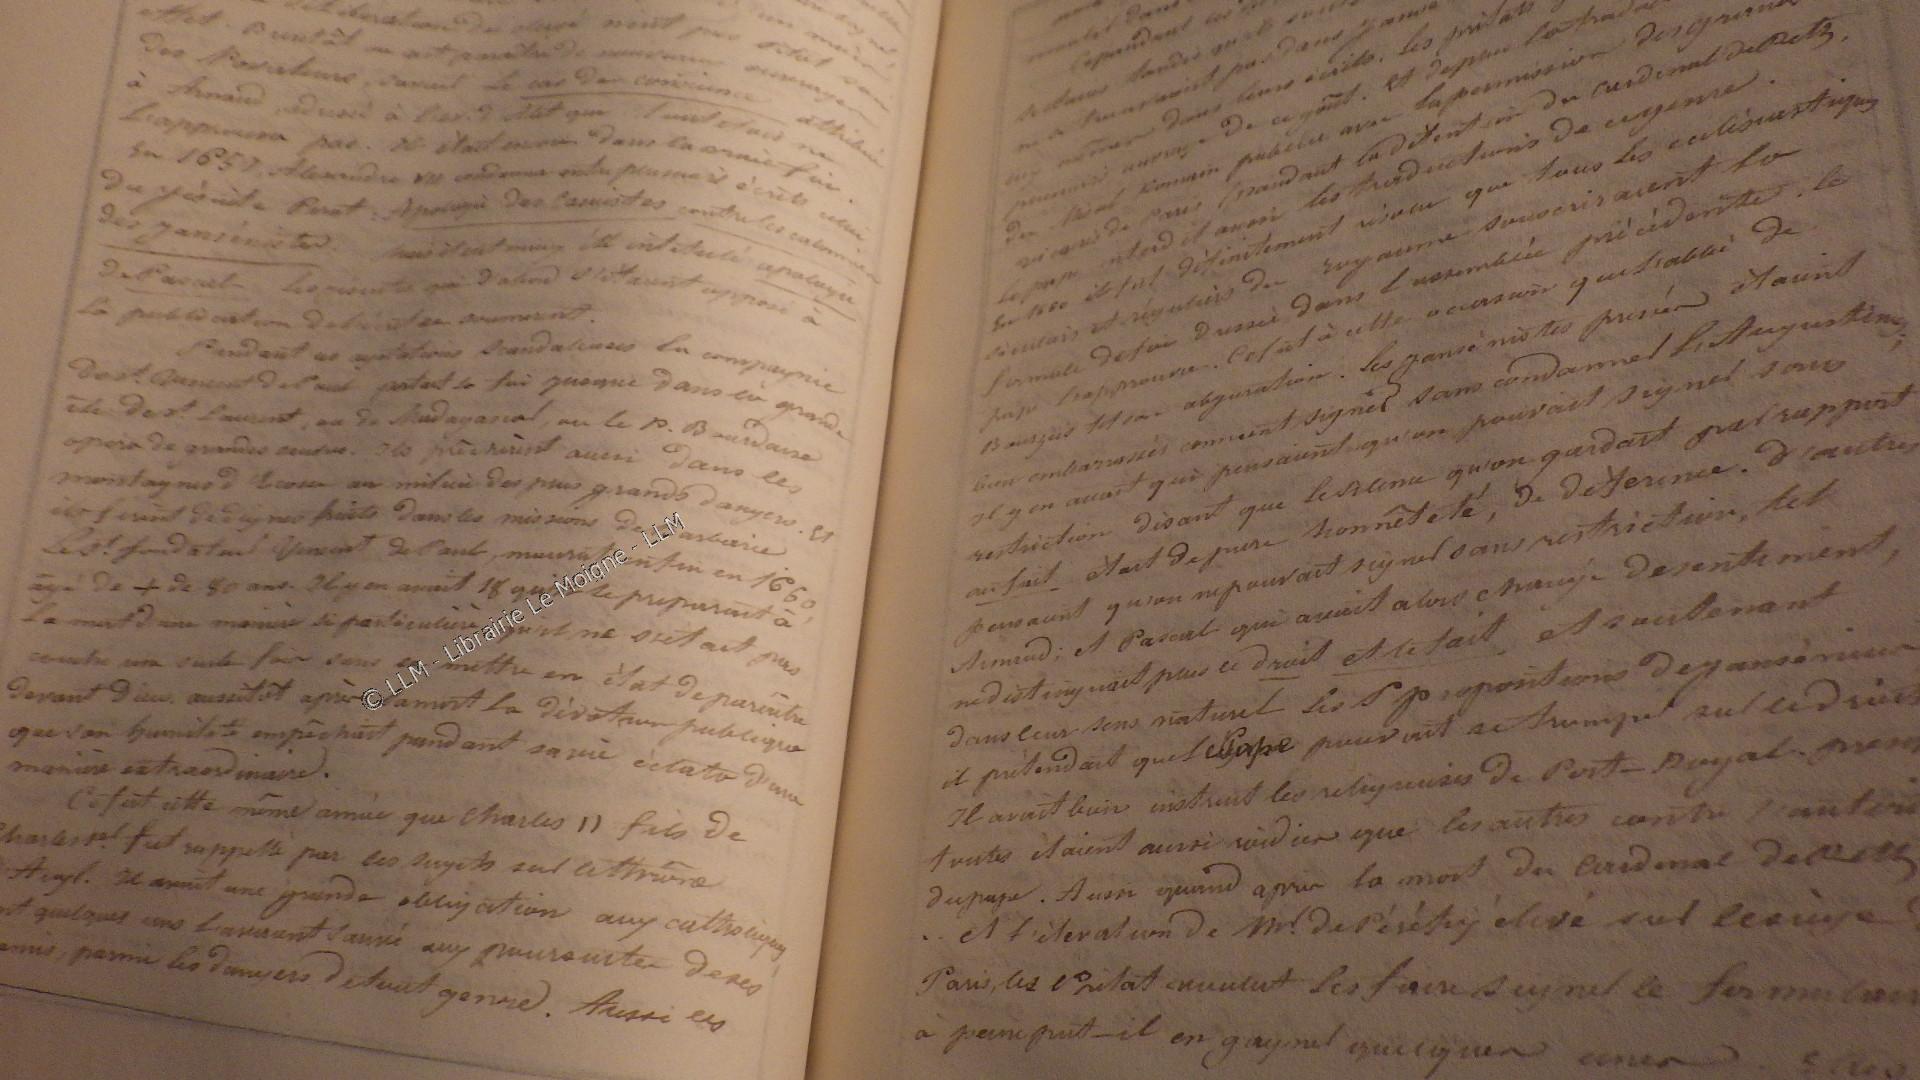 délibération du clergé n'eut pas
effet. Bientôt on vit paraître de nouveaux ouvrages
des Novateurs, savoir le cas de conscience attribué
à Arnaud, adressé à
l'approuva pas. Il était encore dans la vraie foi
En 1657, Alexandre VII condamna entre plusieurs écrits celui
du jésuite Pirot: Apologie des Casuistes contre les calomnies
des jansénistes. mais il eut mieux été intitulé apologie
de Pascal. Les jésuites qui d'abord s'étaient opposé à
la publication de l'écrit se soumirent.
Pendant ces agitations scandaleuses la compagnie
de St. Vincent de Paul portait la foi jusque dans la grande
île de St. Laurent, ou de Madagascar, où le P. Bourdaise
opéra de grandes choses. Ils prêchèrent aussi dans les
montagnes d'Ecosse au milieu des plus grands dangers. Et
ils firent de dignes fruits dans les missions de Barbarie
Le St. fondateur Vincent de Paul, mourut enfin en 1660,
âgé de + de 80 ans. Il y en avait 18 qu'il se préparait à
la mort d'une manière si particulière, qu'il ne s'était pas
couché une seule fois sans se mettre en état de paraître
devant Dieu. aussitôt après sa mort la dévotion publique
que son humilité empêchait pendant sa vie éclata d'une
manière extraordinaire.
Ce fut cette même année que Charles II fils de
Charles 1er fut rappellé par les sujets sur le thrône
d'Angl. Il avait une grande obligation aux catholiques
dont quelques uns l'avaient sauvé aux poursuites de ses
ennemis, parmi les dangers de tout genre. Aussi les
Cependant les
ne se trouvaient pas dans
nommer dans leurs écrits. Les prélats
premier ouvrage de ce goût. Et depuis la traduction
du Missel Romain publiée avec la permission des grands
vicaires de Paris (pendant la détention du cardinal de Retz,
le pape interdit aussi les traductions de ce genre.
En 1660 il fut définitement résolu que tous les ecclésiastiques
séculiers et réguliers du royaume souscriraient la
formule de foi dressée dans l'assemblée précédente. le
pape l'approuva. Ce fut à cette occasion que l'abbé de
Bourzeis fit son abjuration. Les jansénistes privés étaient
bien embarrassés comment signer sans condamner l'Augustinus;
il y en avait qui pensaient qu'on pouvait signer sans
restriction disant que le silence qu'on gardait par rapport
au fait était de pure honnêteté, de déférence. D'autres
pensaient qu'on ne pouvait signer sans restriction, tel
Arnaud; et Pascal qui avait alors changé de sentiment,
ne distinguait plus le droit et le fait, et soutenant
dans leur sens naturel les 5 propositions de jansénius
il prétendait que le Pape pouvait se tromper sur le droit
Il avait bien instruit les religieuses de Port-Royal. presque
toutes étaient aussi roidies que les autres contre l'autorité
du pape. Aussi quand après la mort du Cardinal de Retz
.. et l'élévation de Mr. de Péréfix élevé sur le siège de
Paris, les Prélat voulut les faire signer le formulaire
à peine put-il en gagner quelques unes.